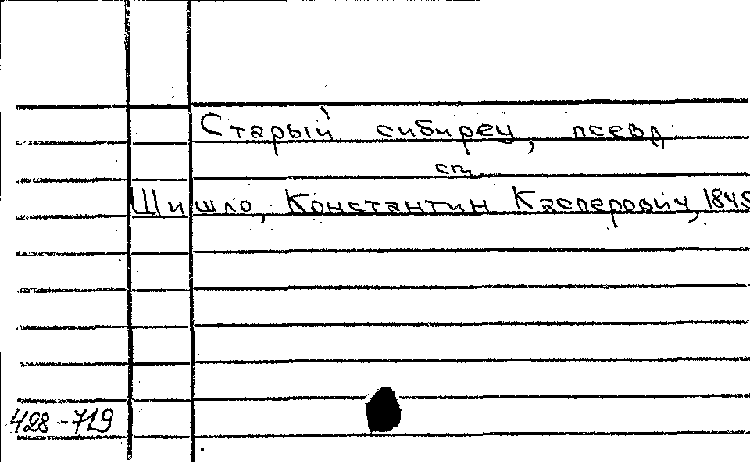 Старый сибирец, псевд
см.
Шишло, Константин Касперович, 1845
428-719